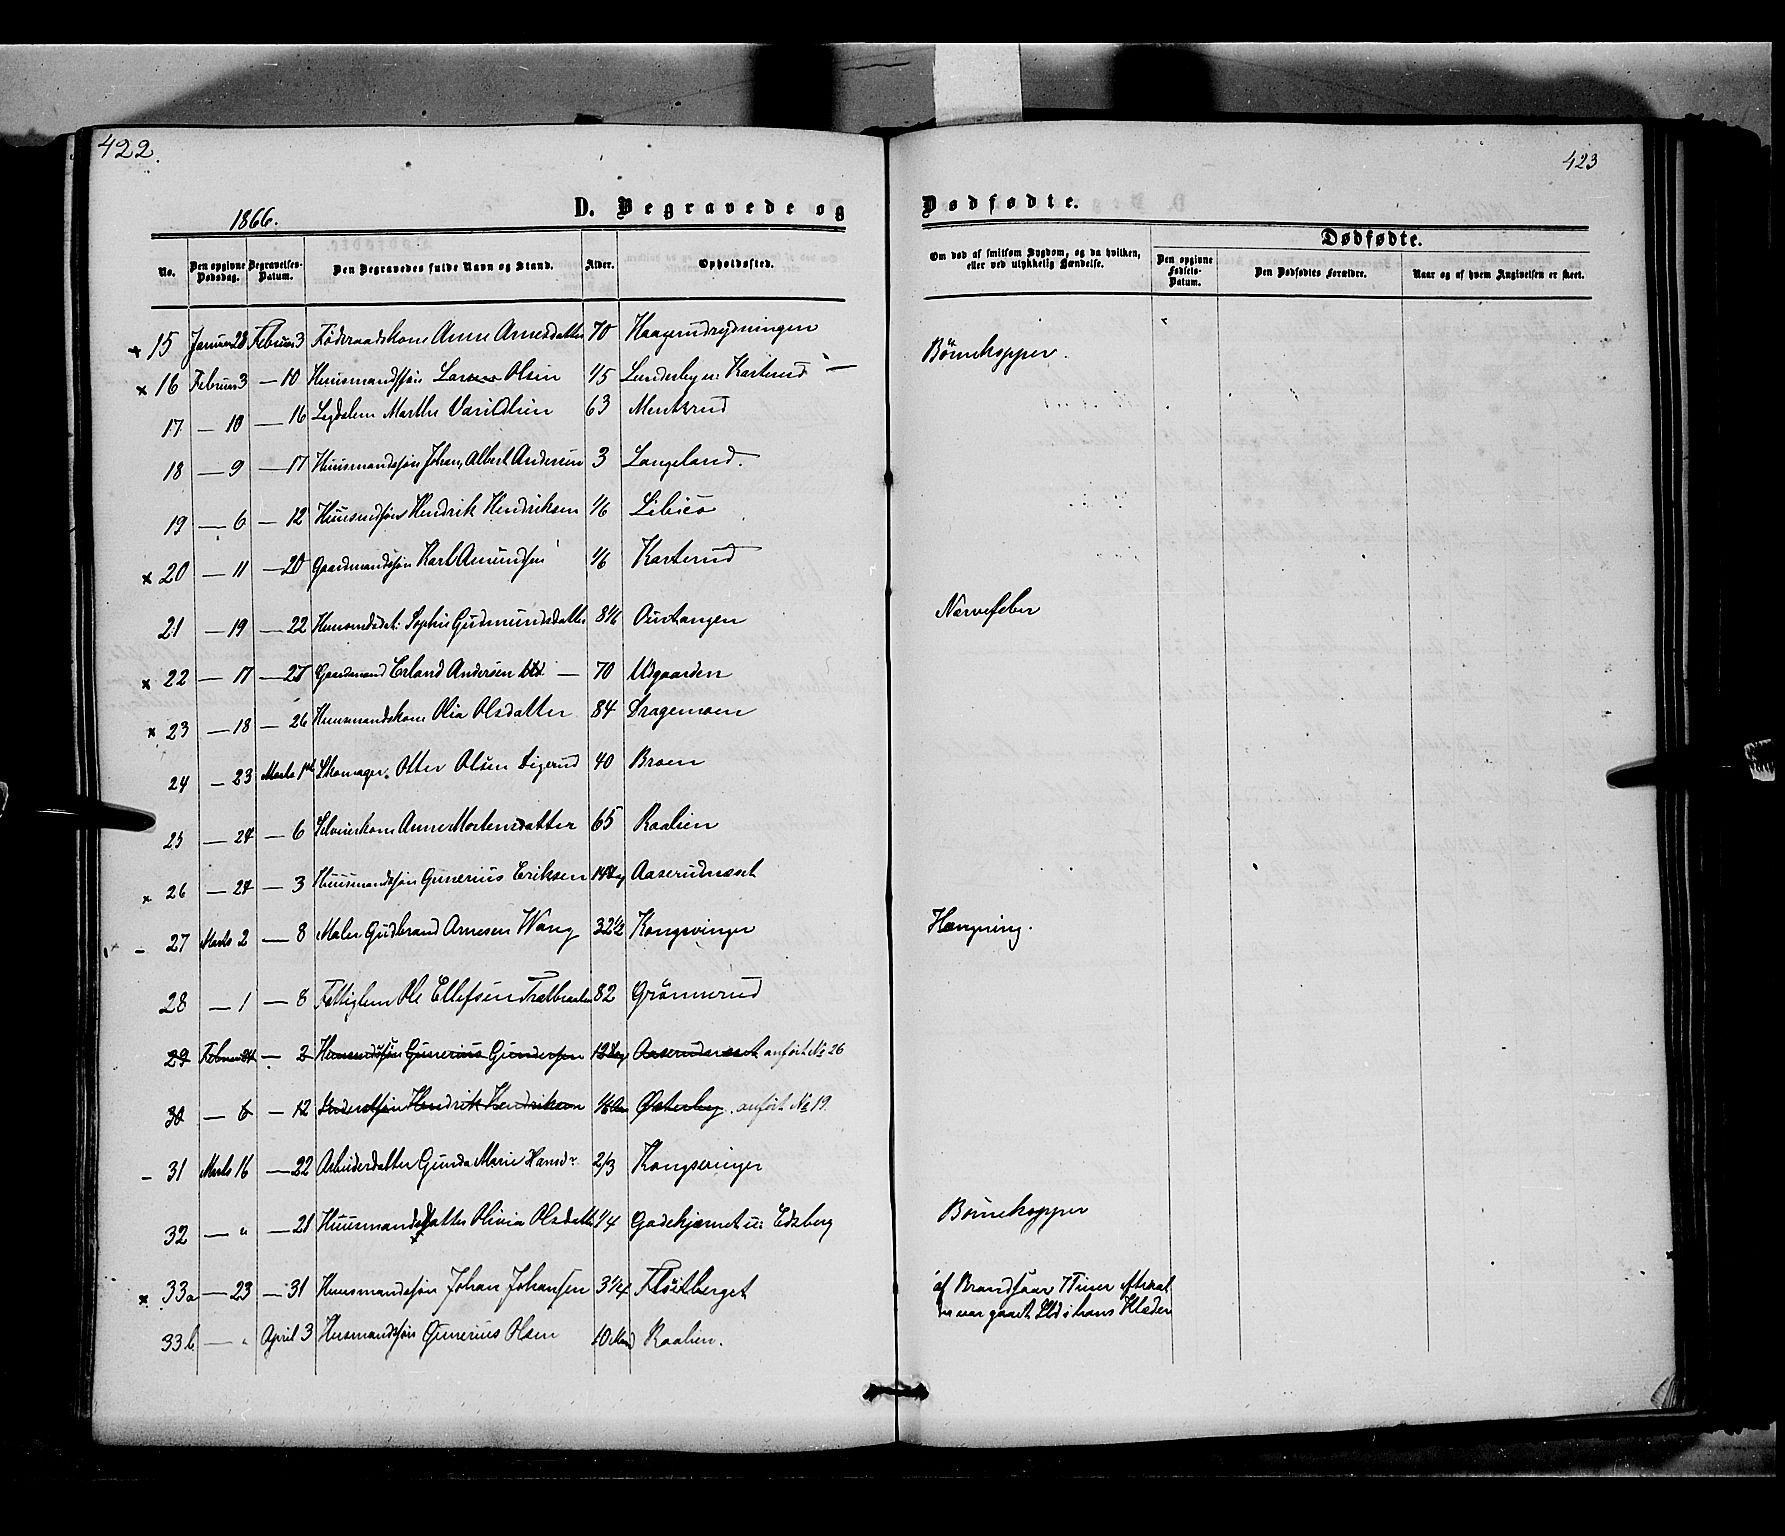 422.
423
1866.
D. Begravede og Dødfødte.
No. Den opgivne Dødsdag. Begravelses-Datum. Den Begravedes fulde Navn og Stand. Alder. Opholdssted. Om død af smitsom Sygdom, og da hvilken, eller ved ulykkelig Hændelse.
Dødfødte.
Den opgivne Fødsels-Datum. Den Dødfødtes Forældre. Naar og af hvem Angivelsen er skeet.
15 Januar 28 Februar 3 Føderaadskone Anne Arnesdatter 70 Haagerudrydningen
x 16 Februar 3 — 10 Huusmandssøn Olsen 1/5 Lunderbye u: Kasterud — Børnekopper.
17 — 10 — 16 Legdslem Marthe 63 Mentsrud
18 — 9 — 17 Huusmandssøn Johan Albert Andersen 3 Langeland.
19 — 6 — 12 Huusmdssøn Hendrik Hendriksen 1/6
x 20 — 11 — 20 Gaardmandssøn Karl Amundsen 1/6 Kasterud
21 — 19 — 22 Huusmdsdat: Sophie Gudmundsdatter 8 1/6 Ourtangen Nervefeber
x 22 — 17 — 27 Gaardmand Erland Andersen — 70 Udgaarden
x 23 — 18 — 26 Huusmandskone Olia Olsdatter 84 Dragemoen
24 — 23 Marts 1ste Skomager Otter Olsen Digerud 40 Broen
25 — 24 — 6 Selveierkone Anne Mortensdatter 65 Raalien
x 26 — 24 — 3 Huusmandssøn Gunerius Eriksen 14 Dg Aaserudnæset
- 27 Marts 2 — 8 Maler Gudbrand Arnesen Wang 32 1/2 Kongsvinger Hængning.
28 — 1 — 8 Fattiglem Ole Ellefsen 82 Grønnerud
29 Februar 24 — 2 Huusmdssøn Gunerius Gundersen 12 Dg Aaserudnæset anført No 26
30 — 6 — 12 Hendrik Hendriksen 1/6 Aar Østerby. anført No 19.
- 31 Marts 16 — 22 Arbeiderdatter Gunda Marie Hansdr 2/3 Kongsvinger
32 — " — 21 Huusmandsdatter Olivia Olsdatter 1/4 Gadekjernet u: Edsberg Børnekopper
x 33a — 23 — 31 Huusmandssøn Johan Johansen 3 1/4 Fløitberget af Brandsaar 7 Timer efterat
der var gaaet Ild i hans Klæder
33b — " April 3 Husmandssøn Gunerius Olsen 10 Raalien.